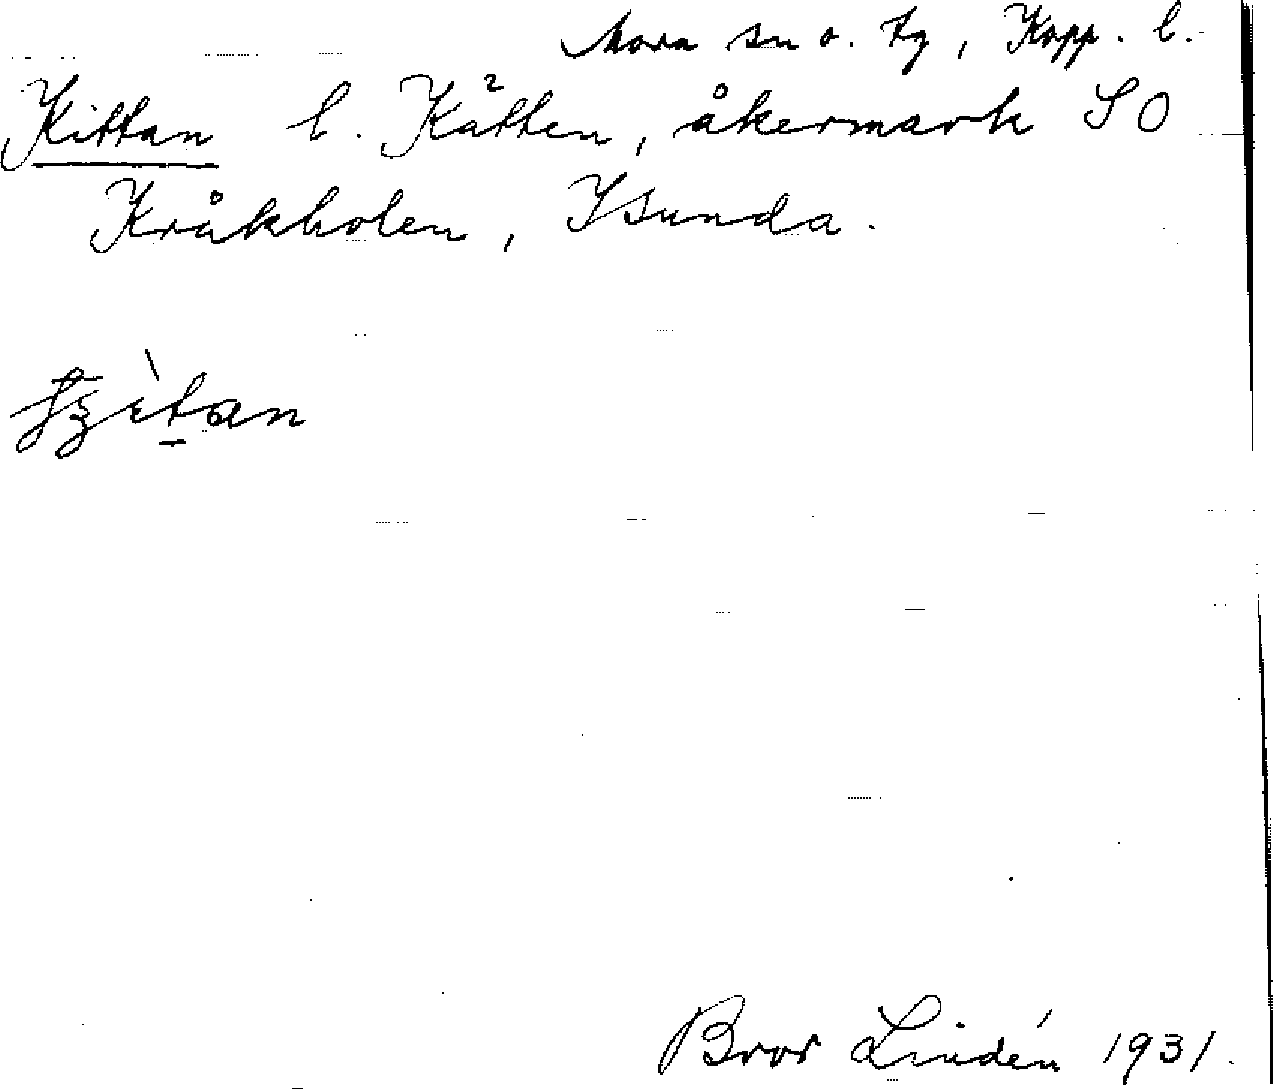 Mora sn o. tg, Kopp. l.
Kittan l. Kåtten, åkermark SO
Kråkholen, Isunda.
Bror Lindén 1931.